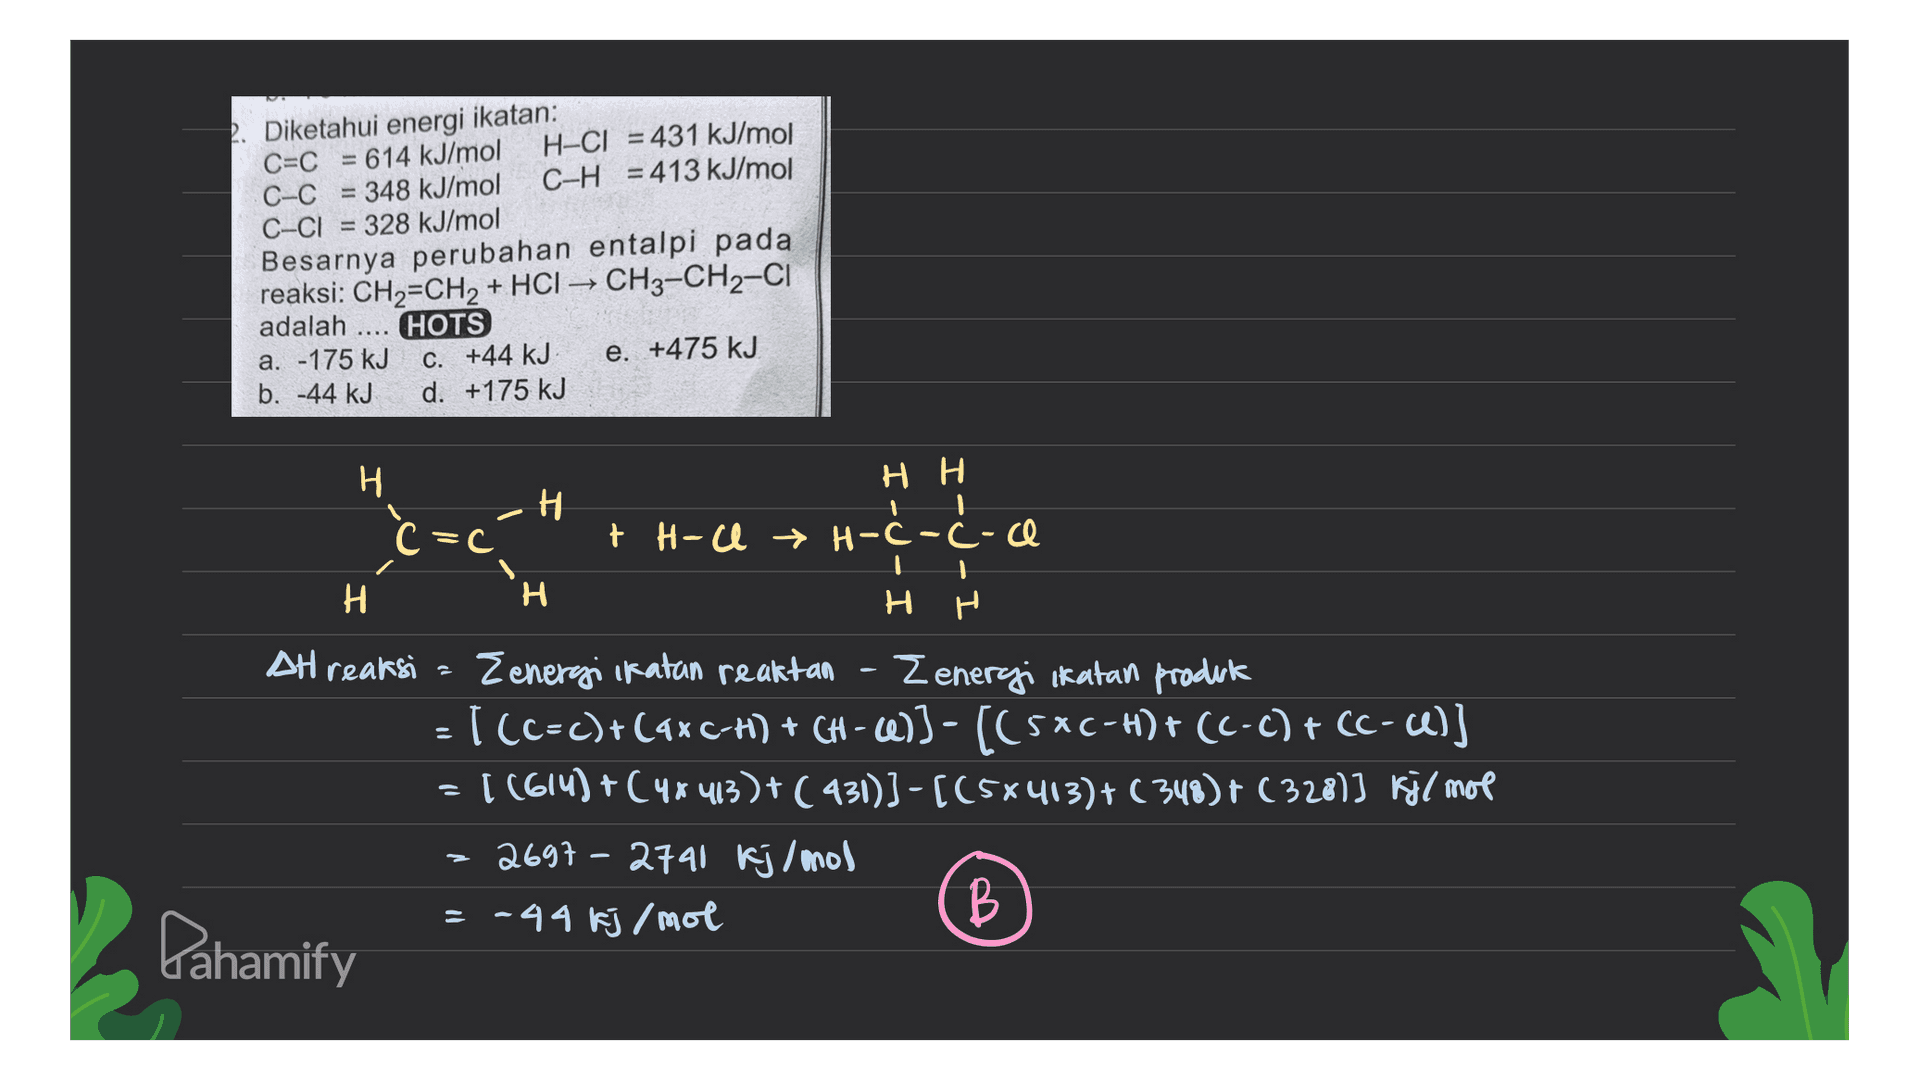 2. Diketahui energi ikatan:
C=C = 614 kJ/mol H–Cl = 431 kJ/mol
C–C = 348 kJ/mol C–H = 413 kJ/mol
C–Cl = 328 kJ/mol
Besarnya perubahan entalpi pada
reaksi: CH₂=CH₂ + HCl → CH₃–CH₂–Cl
adalah .... HOTS
a. -175 kJ c. +44 kJ e. +475 kJ
b. -44 kJ d. +175 kJ
H H H
H
C=C + H-Cl → H-C-C-Cl
H H H H
ΔH reaksi = Σ energi ikatan reaktan - Σ energi ikatan produk
= [(C=C)+(4×C-H)+(H-Cl)]-[(5×C-H)+(C-C)+(C-Cl)]
= [(614)+(4×413)+(431)]-[(5×413)+(348)+(328)] kj/mol
= 2697 - 2741 kj/mol
= -44 kj/mol
B
Pahamify